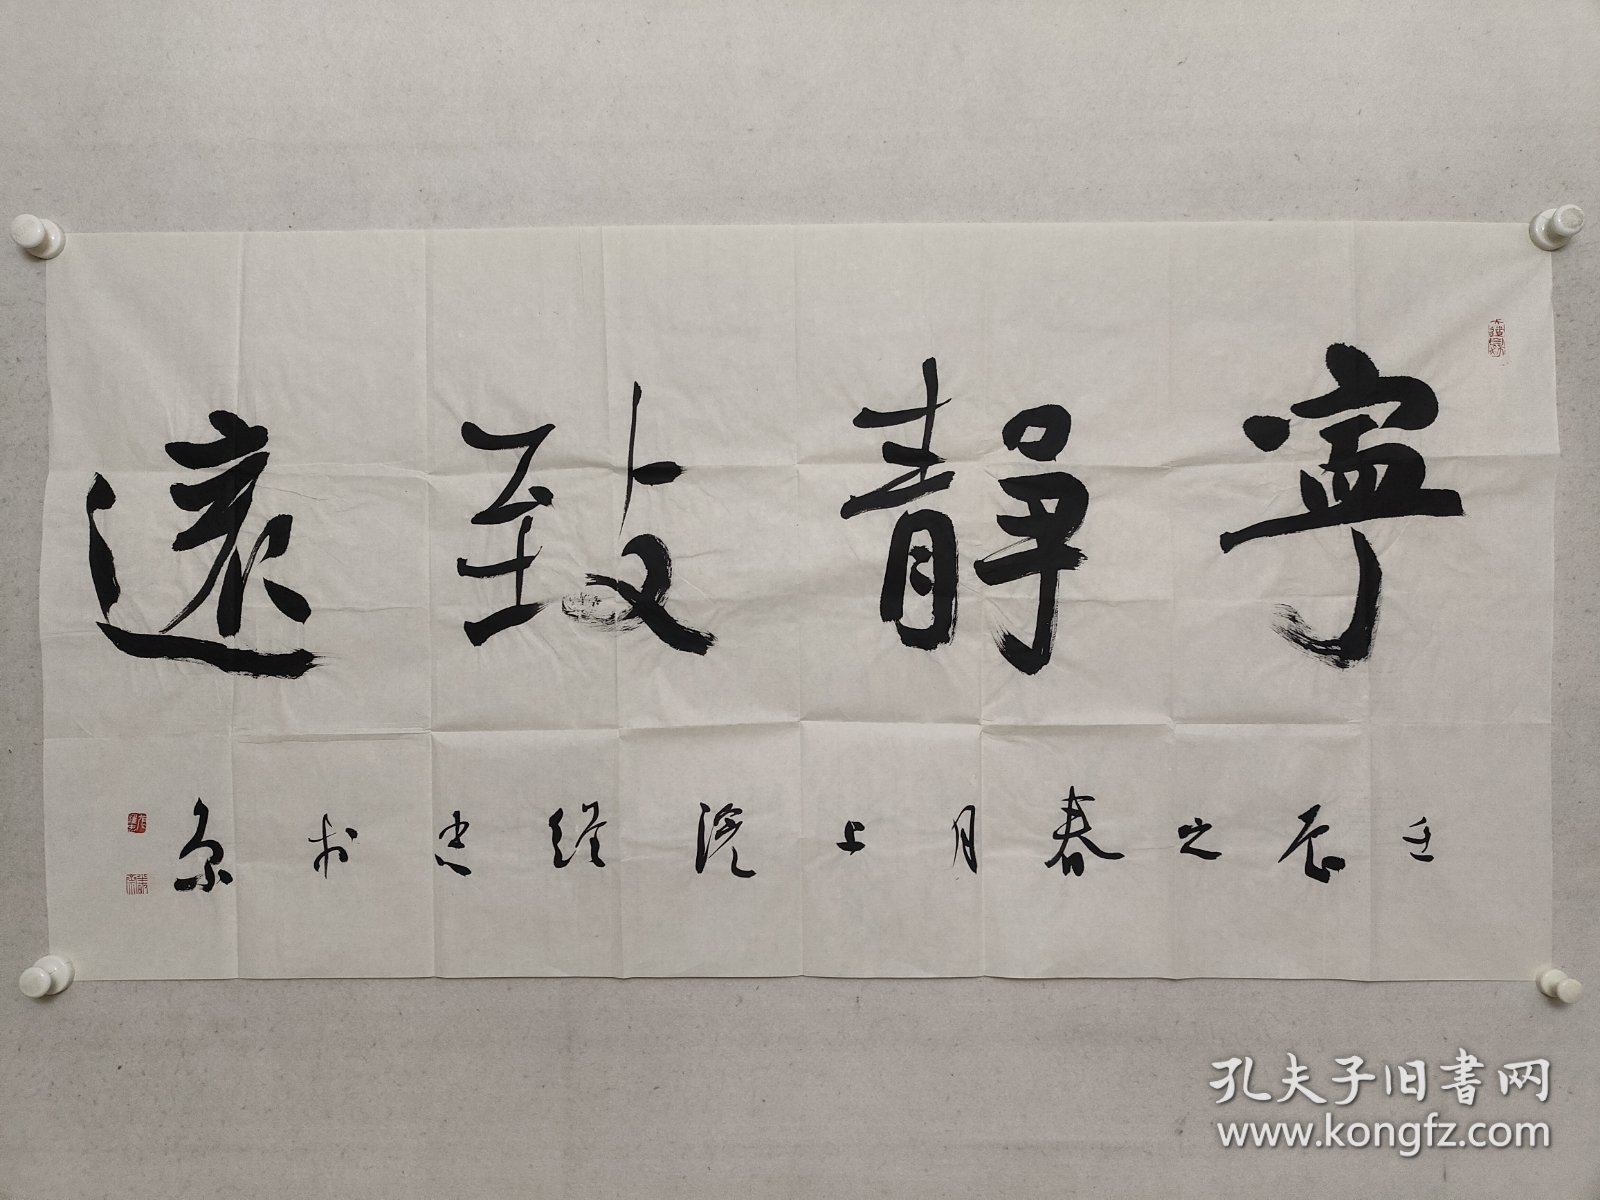 寧靜致遠
壬辰之春月上浣經忠於京
孔夫子旧书网
www.kongfz.com